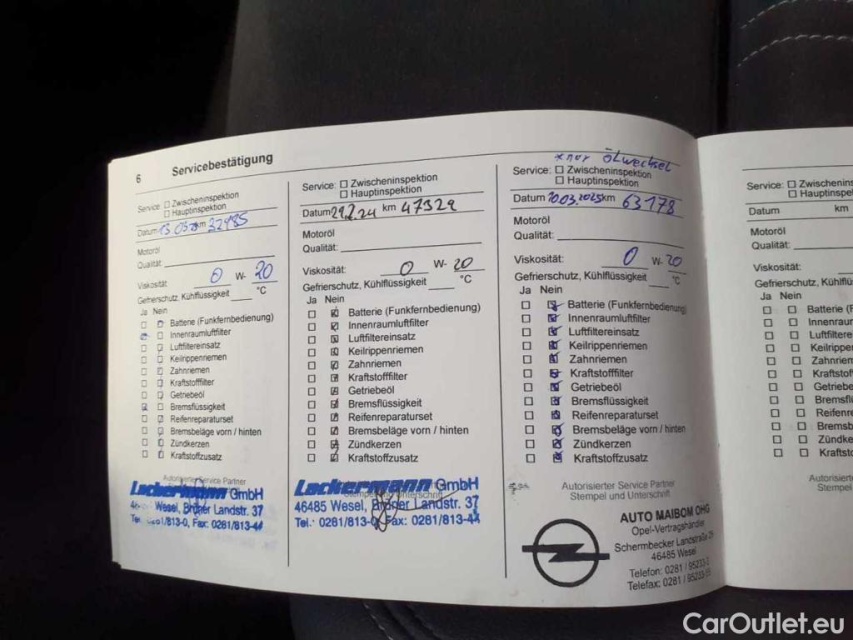 6 Servicebestätigung
Service: ☐ Zwischeninspektion
☐ Hauptinspektion
Datum 13.03. km 32985
Motoröl
Qualität:
Viskosität: 0 W- 20
Gefrierschutz, Kühlflüssigkeit °C
Ja Nein
Batterie (Funkfernbedienung)
Innenraumluftfilter
Luftfiltereinsatz
Keilrippenriemen
Zahnriemen
Kraftstofffilter
Getriebeöl
Bremsflüssigkeit
Reifenreparaturset
Bremsbeläge vorn / hinten
Zündkerzen
Kraftstoffzusatz
Autorisierter Service Partner
Lackermann GmbH
Wesel, Brüner Landstr. 37
/813-0, Fax: 0281/813-44
Service: ☐ Zwischeninspektion
☐ Hauptinspektion
Datum 29.2.24 km 47329
Motoröl
Qualität:
Viskosität: 0 W- 20
Gefrierschutz, Kühlflüssigkeit °C
Ja Nein
Batterie (Funkfernbedienung)
Innenraumluftfilter
Luftfiltereinsatz
Keilrippenriemen
Zahnriemen
Kraftstofffilter
Getriebeöl
Bremsflüssigkeit
Reifenreparaturset
Bremsbeläge vorn / hinten
Zündkerzen
Kraftstoffzusatz
Lackermann GmbH
46485 Wesel, Brüner Landstr. 37
Tel.: 0281/813-0, Fax: 0281/813-44
*nur Ölwechsel
Service: ☐ Zwischeninspektion
☐ Hauptinspektion
Datum 20.03.2025 km 63178
Motoröl
Qualität:
Viskosität: 0 W- 20
Gefrierschutz, Kühlflüssigkeit °C
Ja Nein
Batterie (Funkfernbedienung)
Innenraumluftfilter
Luftfiltereinsatz
Keilrippenriemen
Zahnriemen
Kraftstofffilter
Getriebeöl
Bremsflüssigkeit
Reifenreparaturset
Bremsbeläge vorn / hinten
Zündkerzen
Kraftstoffzusatz
Autorisierter Service Partner
Stempel und Unterschrift
AUTO MAIBOM OHG
Opel-Vertragshändler
Schermbecker Landstraße
46485 Wesel
Telefon: 0281 / 95233-
Telefax: 0281 / 95233-
Service: ☐ Zwischenins
☐ Hauptinspe
Datum km
Motoröl
Qualität:
Viskosität:
Gefrierschutz, Kühlflü
Ja Nein
Batterie (F
Innenraum
Luftfiltere
Keilrippe
Zahnriem
Kraftstof
Getriebe
Bremsfl
Reifenr
Bremsb
Zündke
Kraftst
Autorisiert
Stempel
CarOutlet.eu